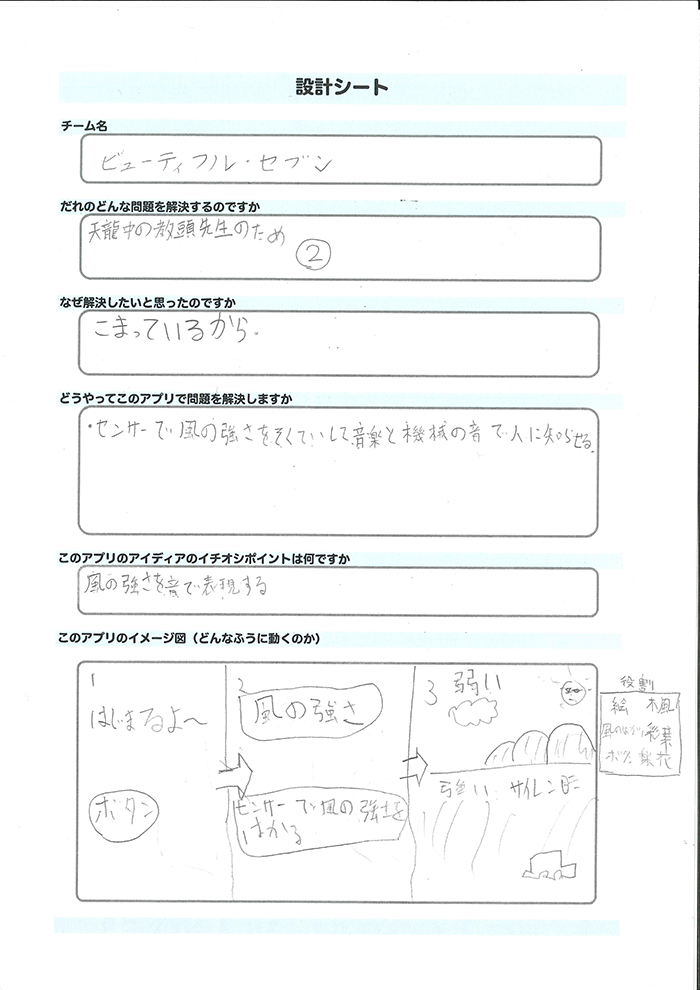 設計シート
チーム名
ビューティフル・セブン
だれのどんな問題を解決するのですか
天龍中の教頭先生のため
②
なぜ解決したいと思ったのですか
こまっているから。
どうやってこのアプリで問題を解決しますか
・センサーで風の強さをそくていして音楽と機械の音で人に知らせる。
このアプリのアイディアのイチオシポイントは何ですか
風の強さを音で表現する
このアプリのイメージ図(どんなふうに動くのか)
1
はじまるよ〜
ボタン
2
風の強さ
センサーで風の強さを
はかる
3 弱い
強い サイレン
役割
絵